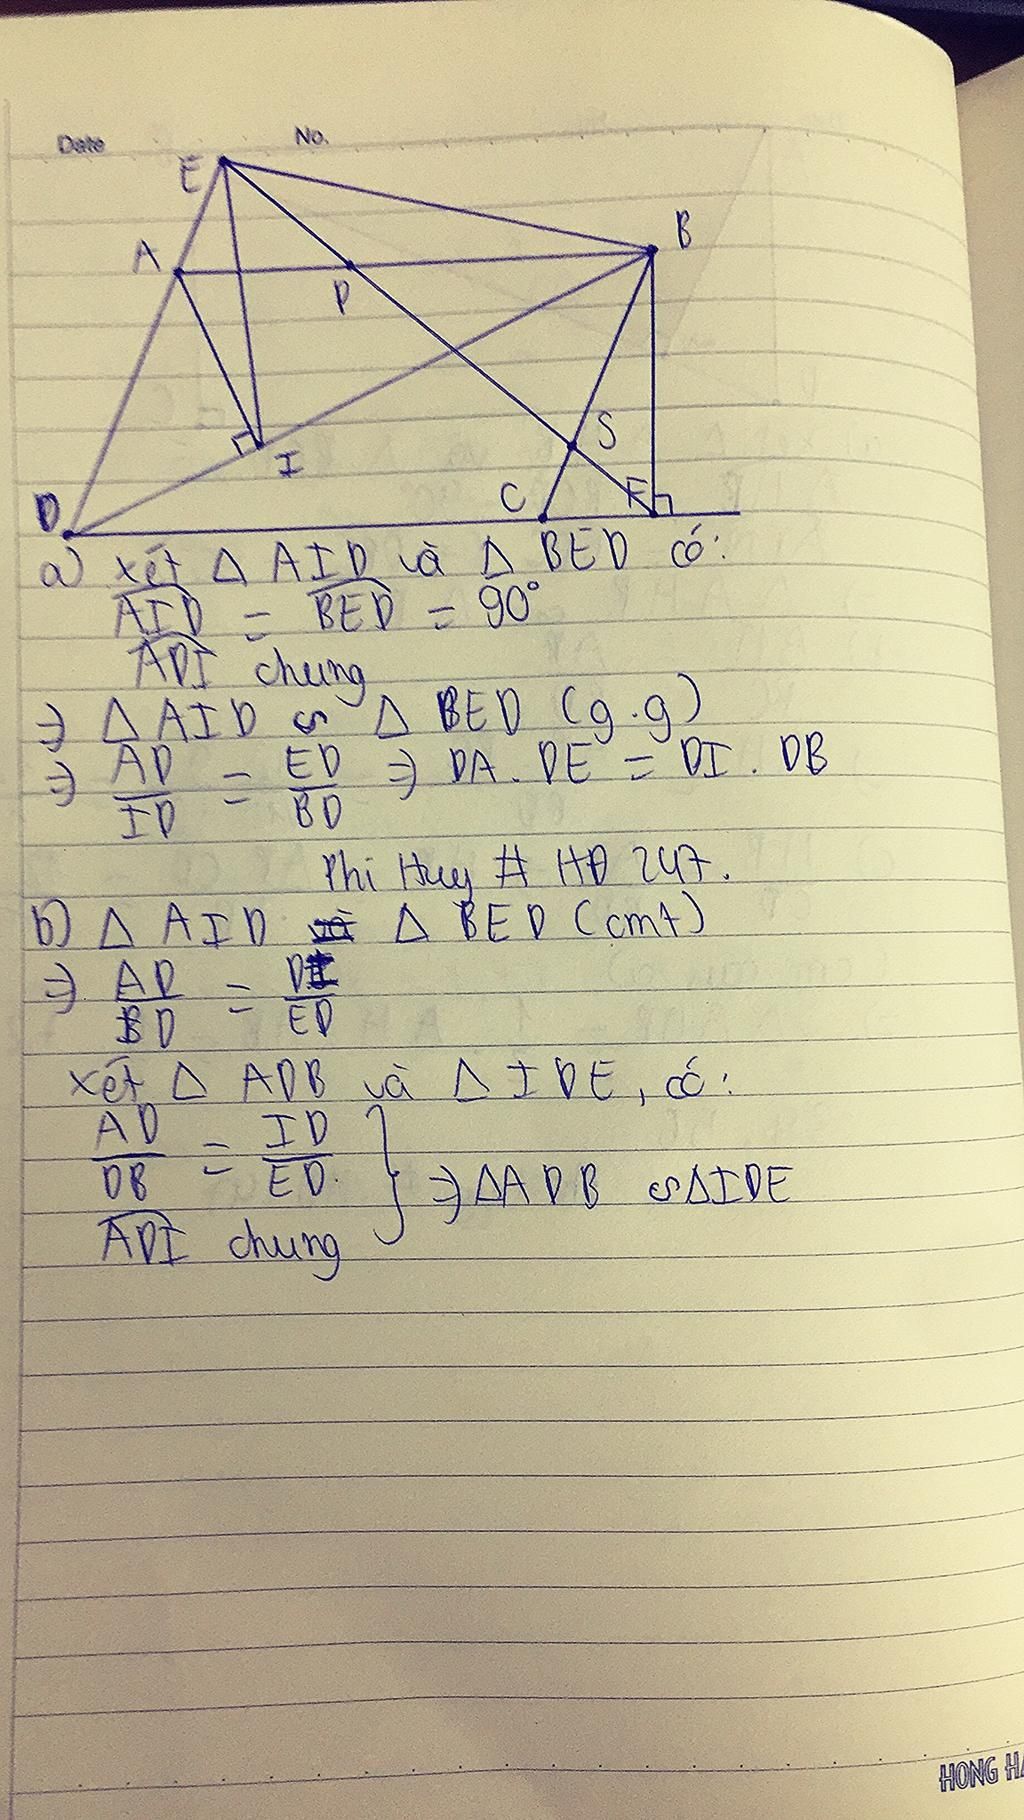 Date No.
E
B
A
P
S
I
D
C
F
a) Xét Δ AID và Δ BED có:
AID = BED = 90°
ADI chung
⇒ Δ AID ∽ Δ BED (g.g)
⇒ AD/ID = ED/BD ⇒ DA. DE = DI. DB
Phi Huy # HĐ 247.
b) Δ AID Δ BED (cmt)
⇒ AD/BD = DI/ED
Xét Δ ADB và Δ IDE, có:
AD/DB = ID/ED. } ⇒ ΔADB ∽ ΔIDE
ADI chung
HONG HA